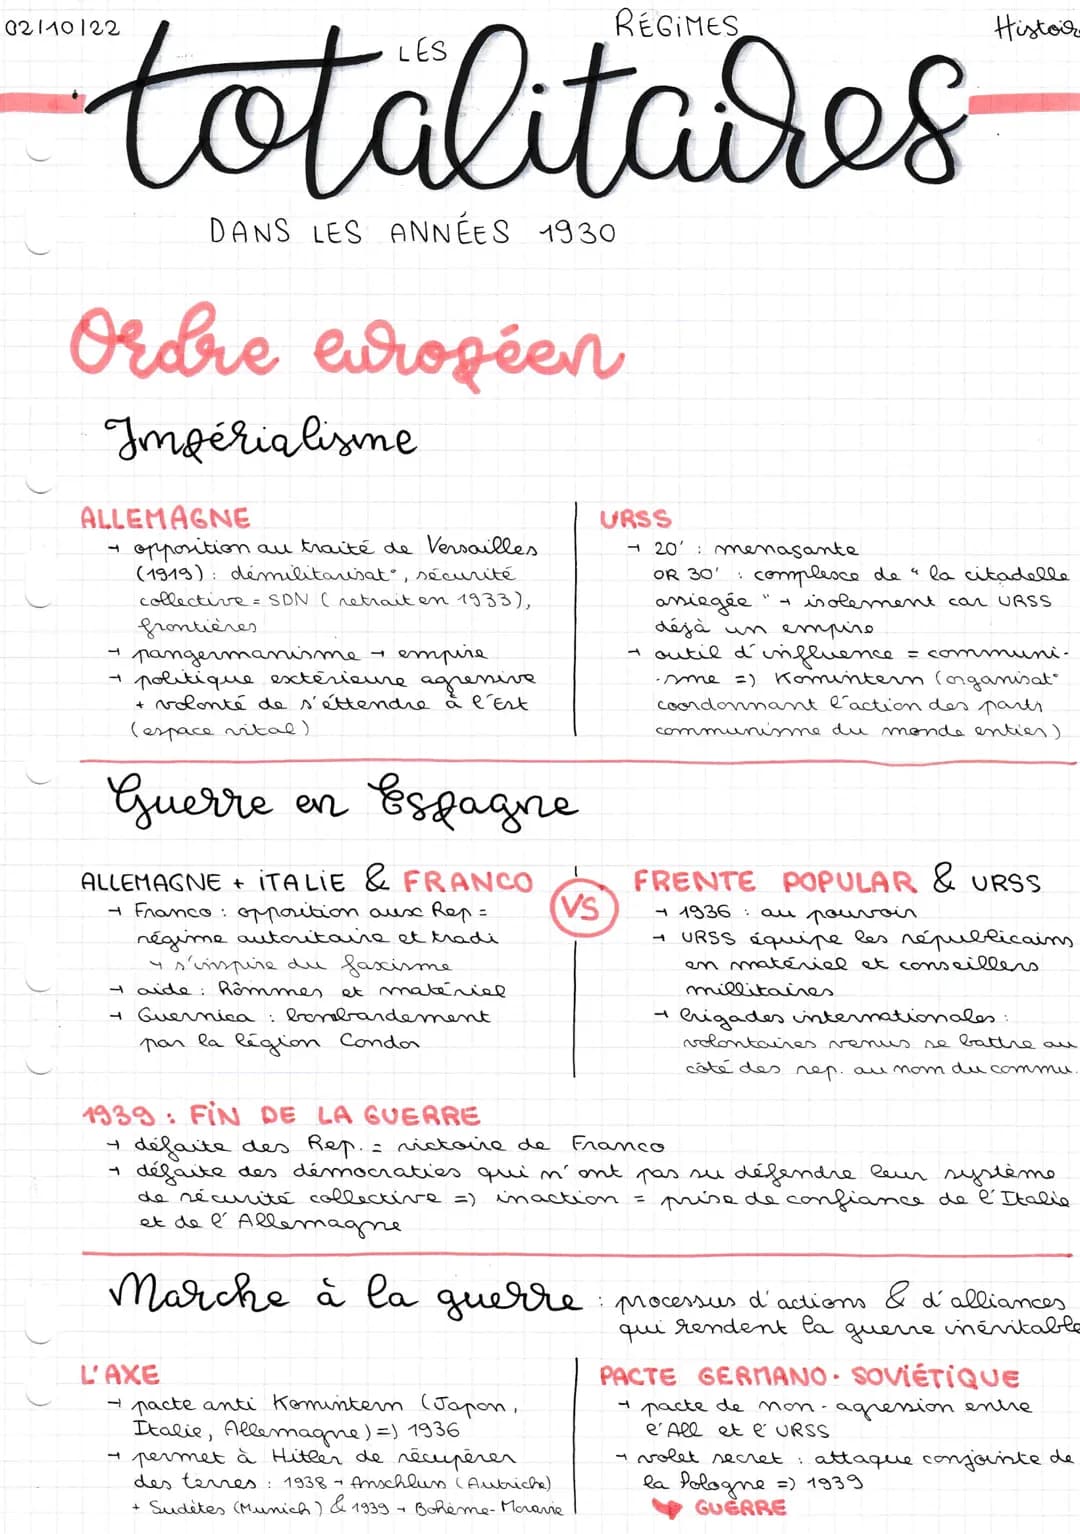 02/10/22
LES RÉGIMES
Histoir
totalitaires
DANS LES ANNÉES 1930
Ordre européen
Impérialisme
ALLEMAGNE
→ opposition au traité de Versailles
(1919) : démilitarisat°, sécurité
collective = SDN (retrait en 1933),
frontières
→ pangermanisme → empire
→ politique extérieure agressive
+ volonté de s'éttendre à l'Est
(espace vital)
URSS
→ 20' : menaçante
OR 30' : complexe de " la citadelle
assiegée " → isolement car URSS
déjà un empire
→ outil d'influence = communi-
-sme => Komintern (organisat°
coordonnant l'action des parts
communisme du monde entier)
Guerre en Espagne
ALLEMAGNE + iTALiE & FRANCO
→ Franco : opposition aux Rep =
régime autoritaire et tradi
↳ s'inspire du faxisme
→ aide : hommes et matériel
→ Guernica : bombardement
par la légion Condor
VS
FRENTE POPULAR & URSS
→ 1936 : au pouvoir
→ URSS équipe les républicains
en matériel et conseillers
millitaires
→ brigades internationales :
volontaires venus se battre au
côté des rep. au nom du commu.
1939 : FiN DE LA GUERRE
→ défaite des Rep. = victoire de Franco
→ défaite des démocraties qui n'ont pas su défendre leur système
de sécurité collective => inaction = prise de confiance de l'Italie
et de l'Allemagne
Marche à la guerre : processus d'actions & d'alliances
qui rendent la guerre inévitable
L'AXE
→ pacte anti Komintern (Japon,
Italie, Allemagne) => 1936
→ permet à Hitler de récupérer
des terres : 1938 → Anschluss (Autriche)
+ Sudètes (Munich) & 1939 → Bohême-Moravie
PACTE GERMANO-SOViÉTiQUE
→ pacte de non-agression entre
l'All et l'URSS
→ volet secret : attaque conjointe de
la Pologne => 1939
GUERRE